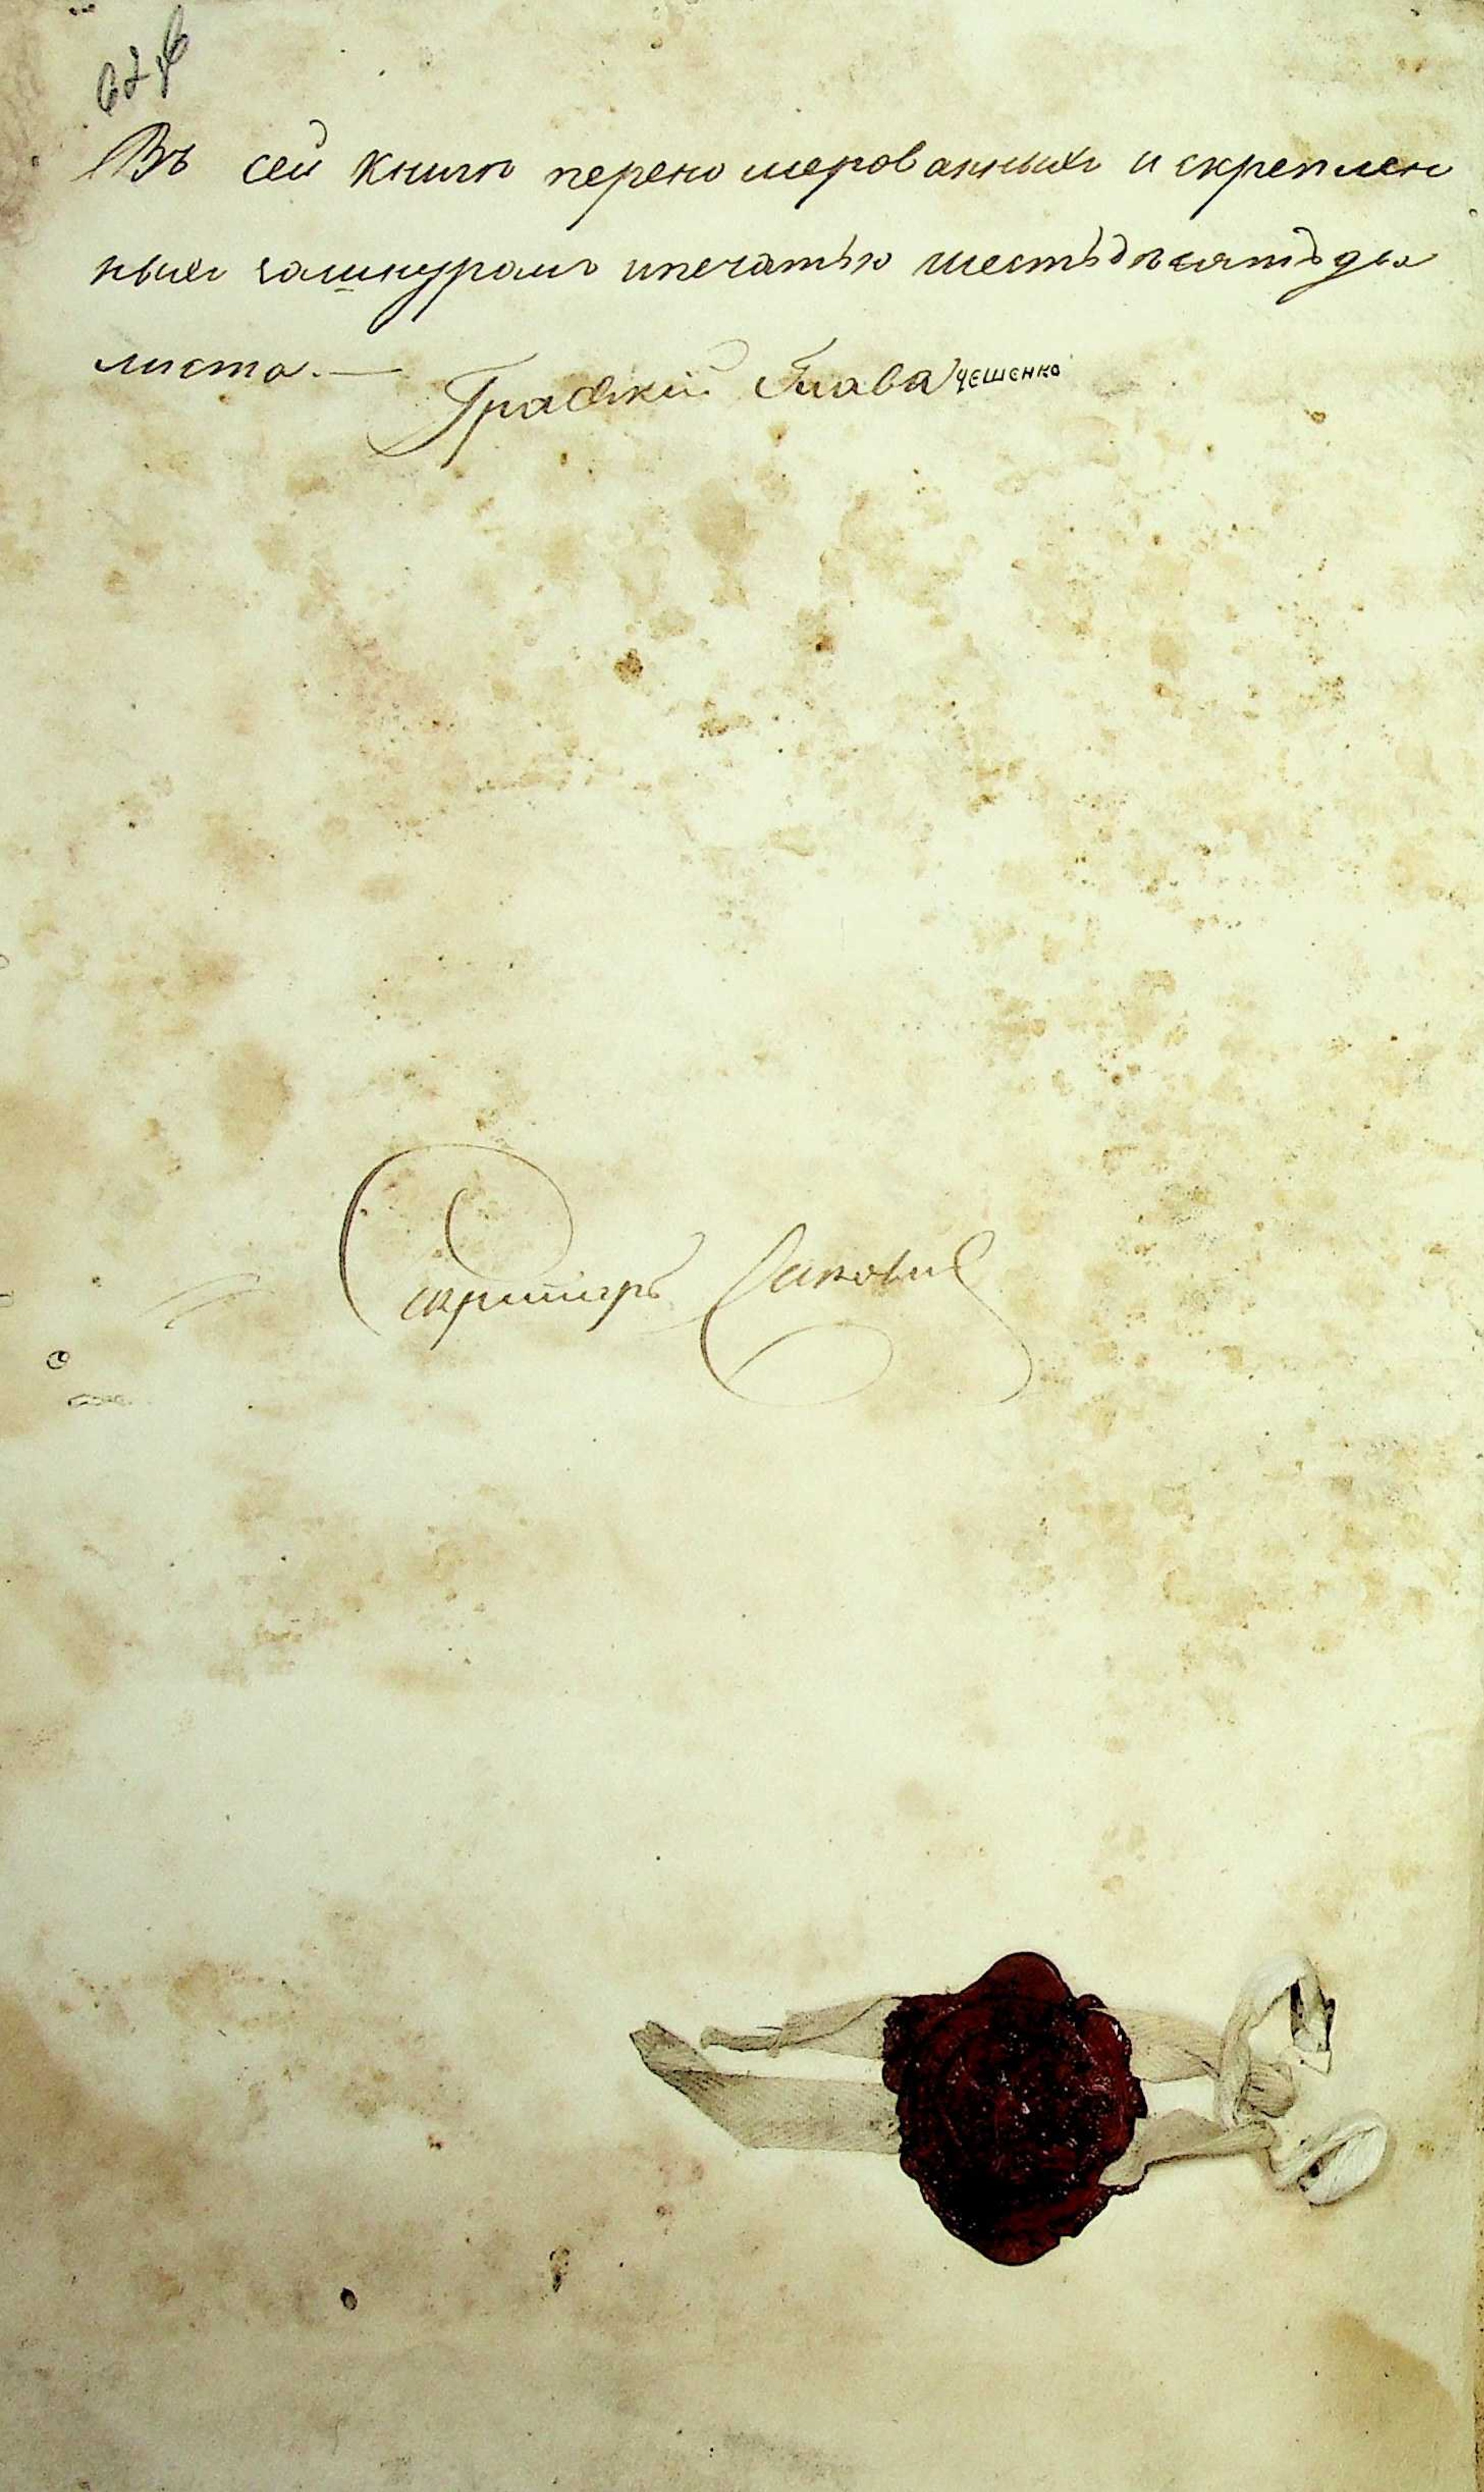 Въ сей книги переномерованныхъ и скреплен
ныхъ зашнуромъ ипечатью шестьдесятъдва
листа. — Градскій Глава Чешенко
Скритарь